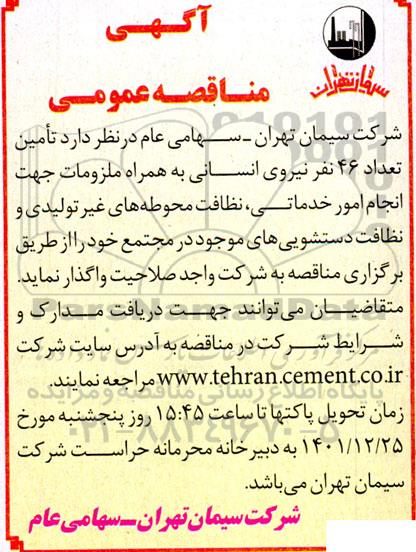 آگهی
سیمان تهران
مناقصه عمومی
شرکت سیمان تهران ـ سهامی عام در نظر دارد تأمین
تعداد ۴۶ نفر نیروی انسانی به همراه ملزومات جهت
انجام امور خدماتی، نظافت محوطه‌های غیر تولیدی و
نظافت دستشویی‌های موجود در مجتمع خود را از طریق
برگزاری مناقصه به شرکت واجد صلاحیت واگذار نماید.
متقاضیان می‌توانند جهت دریافت مدارک و
شرایط شرکت در مناقصه به آدرس سایت شرکت
www.tehran.cement.co.ir مراجعه نمایند.
زمان تحویل پاکتها تا ساعت ۱۵:۴۵ روز پنجشنبه مورخ
۱۴۰۱/۱۲/۲۵ به دبیرخانه محرمانه حراست شرکت
سیمان تهران می‌باشد.
شرکت سیمان تهران ـ سهامی عام
ParsNamadData
پایگاه اطلاع رسانی مناقصه و مزایده
۰۲۱-۸۸۳۴۹۶۷۰-۵